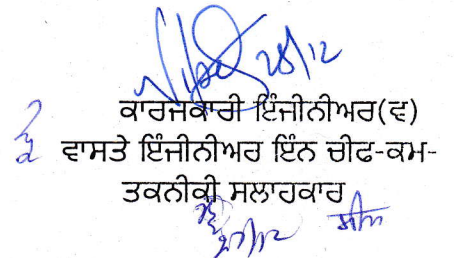 28/12
ਕਾਰਜਕਾਰੀ ਇੰਜੀਨੀਅਰ(ਵ)
ਵਾਸਤੇ ਇੰਜੀਨੀਅਰ ਇੰਨ ਚੀਫ-ਕਮ-
ਤਕਨੀਕੀ ਸਲਾਹਕਾਰ
27/12